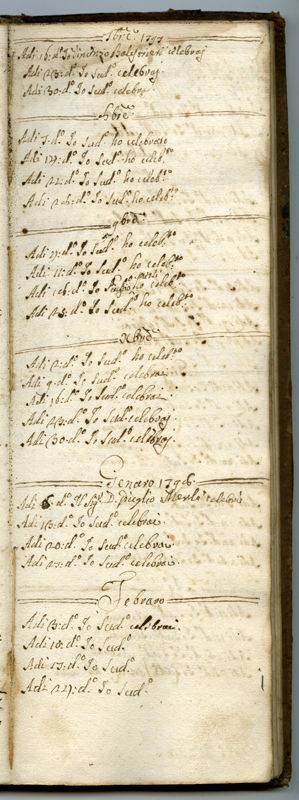 7bre 1795
Adi 16: do Io Vincenzo Balestrieri celebraj
Adi 23: do Io Sudo celebraj
Adi 30: do Io Sudo celebraj
8bre
Adi 7: do Io Sudo ho celebrato
Adi 14: do Io Sudo ho celebto
Adi 22: do Io Sudo ho celebto
Adi 26: do Io Sudo ho celebto
9bre
Adi do Io Sudo ho celebto
Adi 11: do Io Sudo ho celebto
Adi 16: do Io celebto
Adi do Io Sudo ho celebto
Xbre
Adi 2: do Io Sudo ho celebto
Adi 9: do Io Sudo celebrai
Adi 16: do Io Sudo celebrai
Adi 23: do Io Sudo celebraj
Adi 30: do Io Sudo celebraj
Genaro 1796
Adi 6: do Il Sigr D. Giuglio Merla celebrò
Adi 13: do Io Sudo celebrai
Adi 20: do Io Sudo celebrai
Adi 27: do Io Sudo celebrai
Febraro
Adi 3: do Io Sudo celebrai
Adi 10: do Io Sudo
Adi 17: do Io Sudo
Adi 24: do Io Sudo